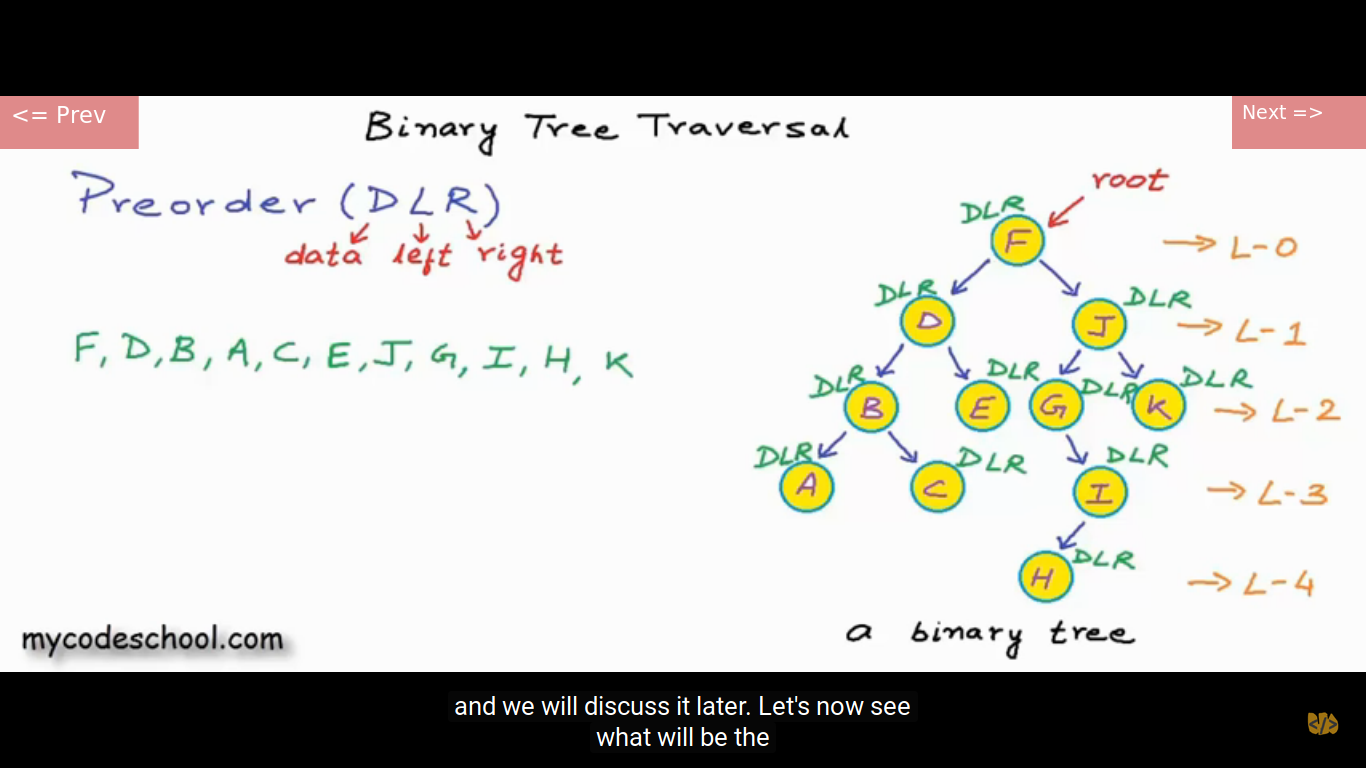 <= Prev
Binary Tree Traversal
Next =>
Preorder (DLR)
data left right
F, D, B, A, C, E, J, G, I, H, K
root
DLR
F
L-0
DLR
D
J
DLR
L-1
DLR
B
E
DLR
G
DLR
K
DLR
L-2
DLR
A
C
DLR
I
DLR
L-3
H
DLR
L-4
a binary tree
mycodeschool.com
and we will discuss it later. Let's now see
what will be the